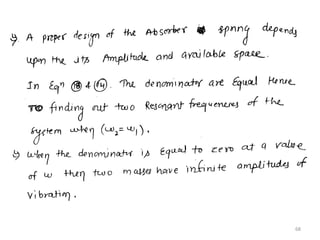 ↳ A proper design of the Absorber spring depends
upon the its Amplitude and available space.
In Eqn (13) & (14). The denominator are Equal Hence
TO finding out two Resonant frequencies of the
system when (ω₂ = ω₁).
↳ when the denominator is Equal to zero at a value
of ω then two masses have infinite amplitudes of
Vibration.
68